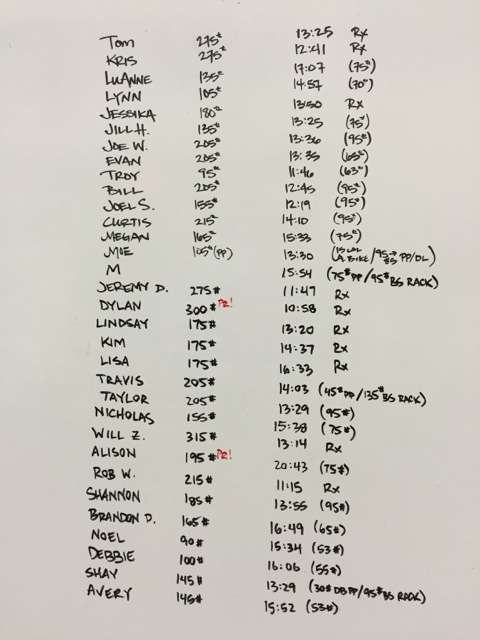 Tom 275# 13:25 Rx
KRIS 275# 12:41 Rx
LuANNE 135# 17:07 (75#)
LYNN 105# 14:57 (70#)
JESSIKA 180# 13:50 Rx
JILL H. 135# 13:25 (75#)
JOE W. 205# 13:36 (95#)
EVAN 205# 13:35 (65#)
TROY 95# 11:46 (63#)
BILL 205# 12:45 (95#)
JOEL S. 155# 12:19 (95#)
CURTIS 215# 14:10 (95#)
MEGAN 165# 15:33 (75#)
MOE 105# (PP) 13:30 (15 CAL A.BIKE/95# PP/DL)
M 15:54 (75# PP/95# BS RACK)
JEREMY D. 275# 11:47 Rx
DYLAN 300# PR! 10:58 Rx
LINDSAY 175# 13:20 Rx
KIM 175# 14:37 Rx
LISA 175# 16:33 Rx
TRAVIS 205# 14:03 (45# PP/135# BS RACK)
TAYLOR 205# 13:29 (95#)
NICHOLAS 155# 15:38 (75#)
WILL Z. 315# 13:14 Rx
ALISON 195# PR! 20:43 (75#)
ROB W. 215# 11:15 Rx
SHANNON 185# 13:55 (95#)
BRANDON D. 165# 16:49 (65#)
NOEL 90# 15:34 (53#)
DEBBIE 100# 16:06 (55#)
SHAY 145# 13:29 (30# DB PP/95# BS RACK)
AVERY 145# 15:52 (53#)